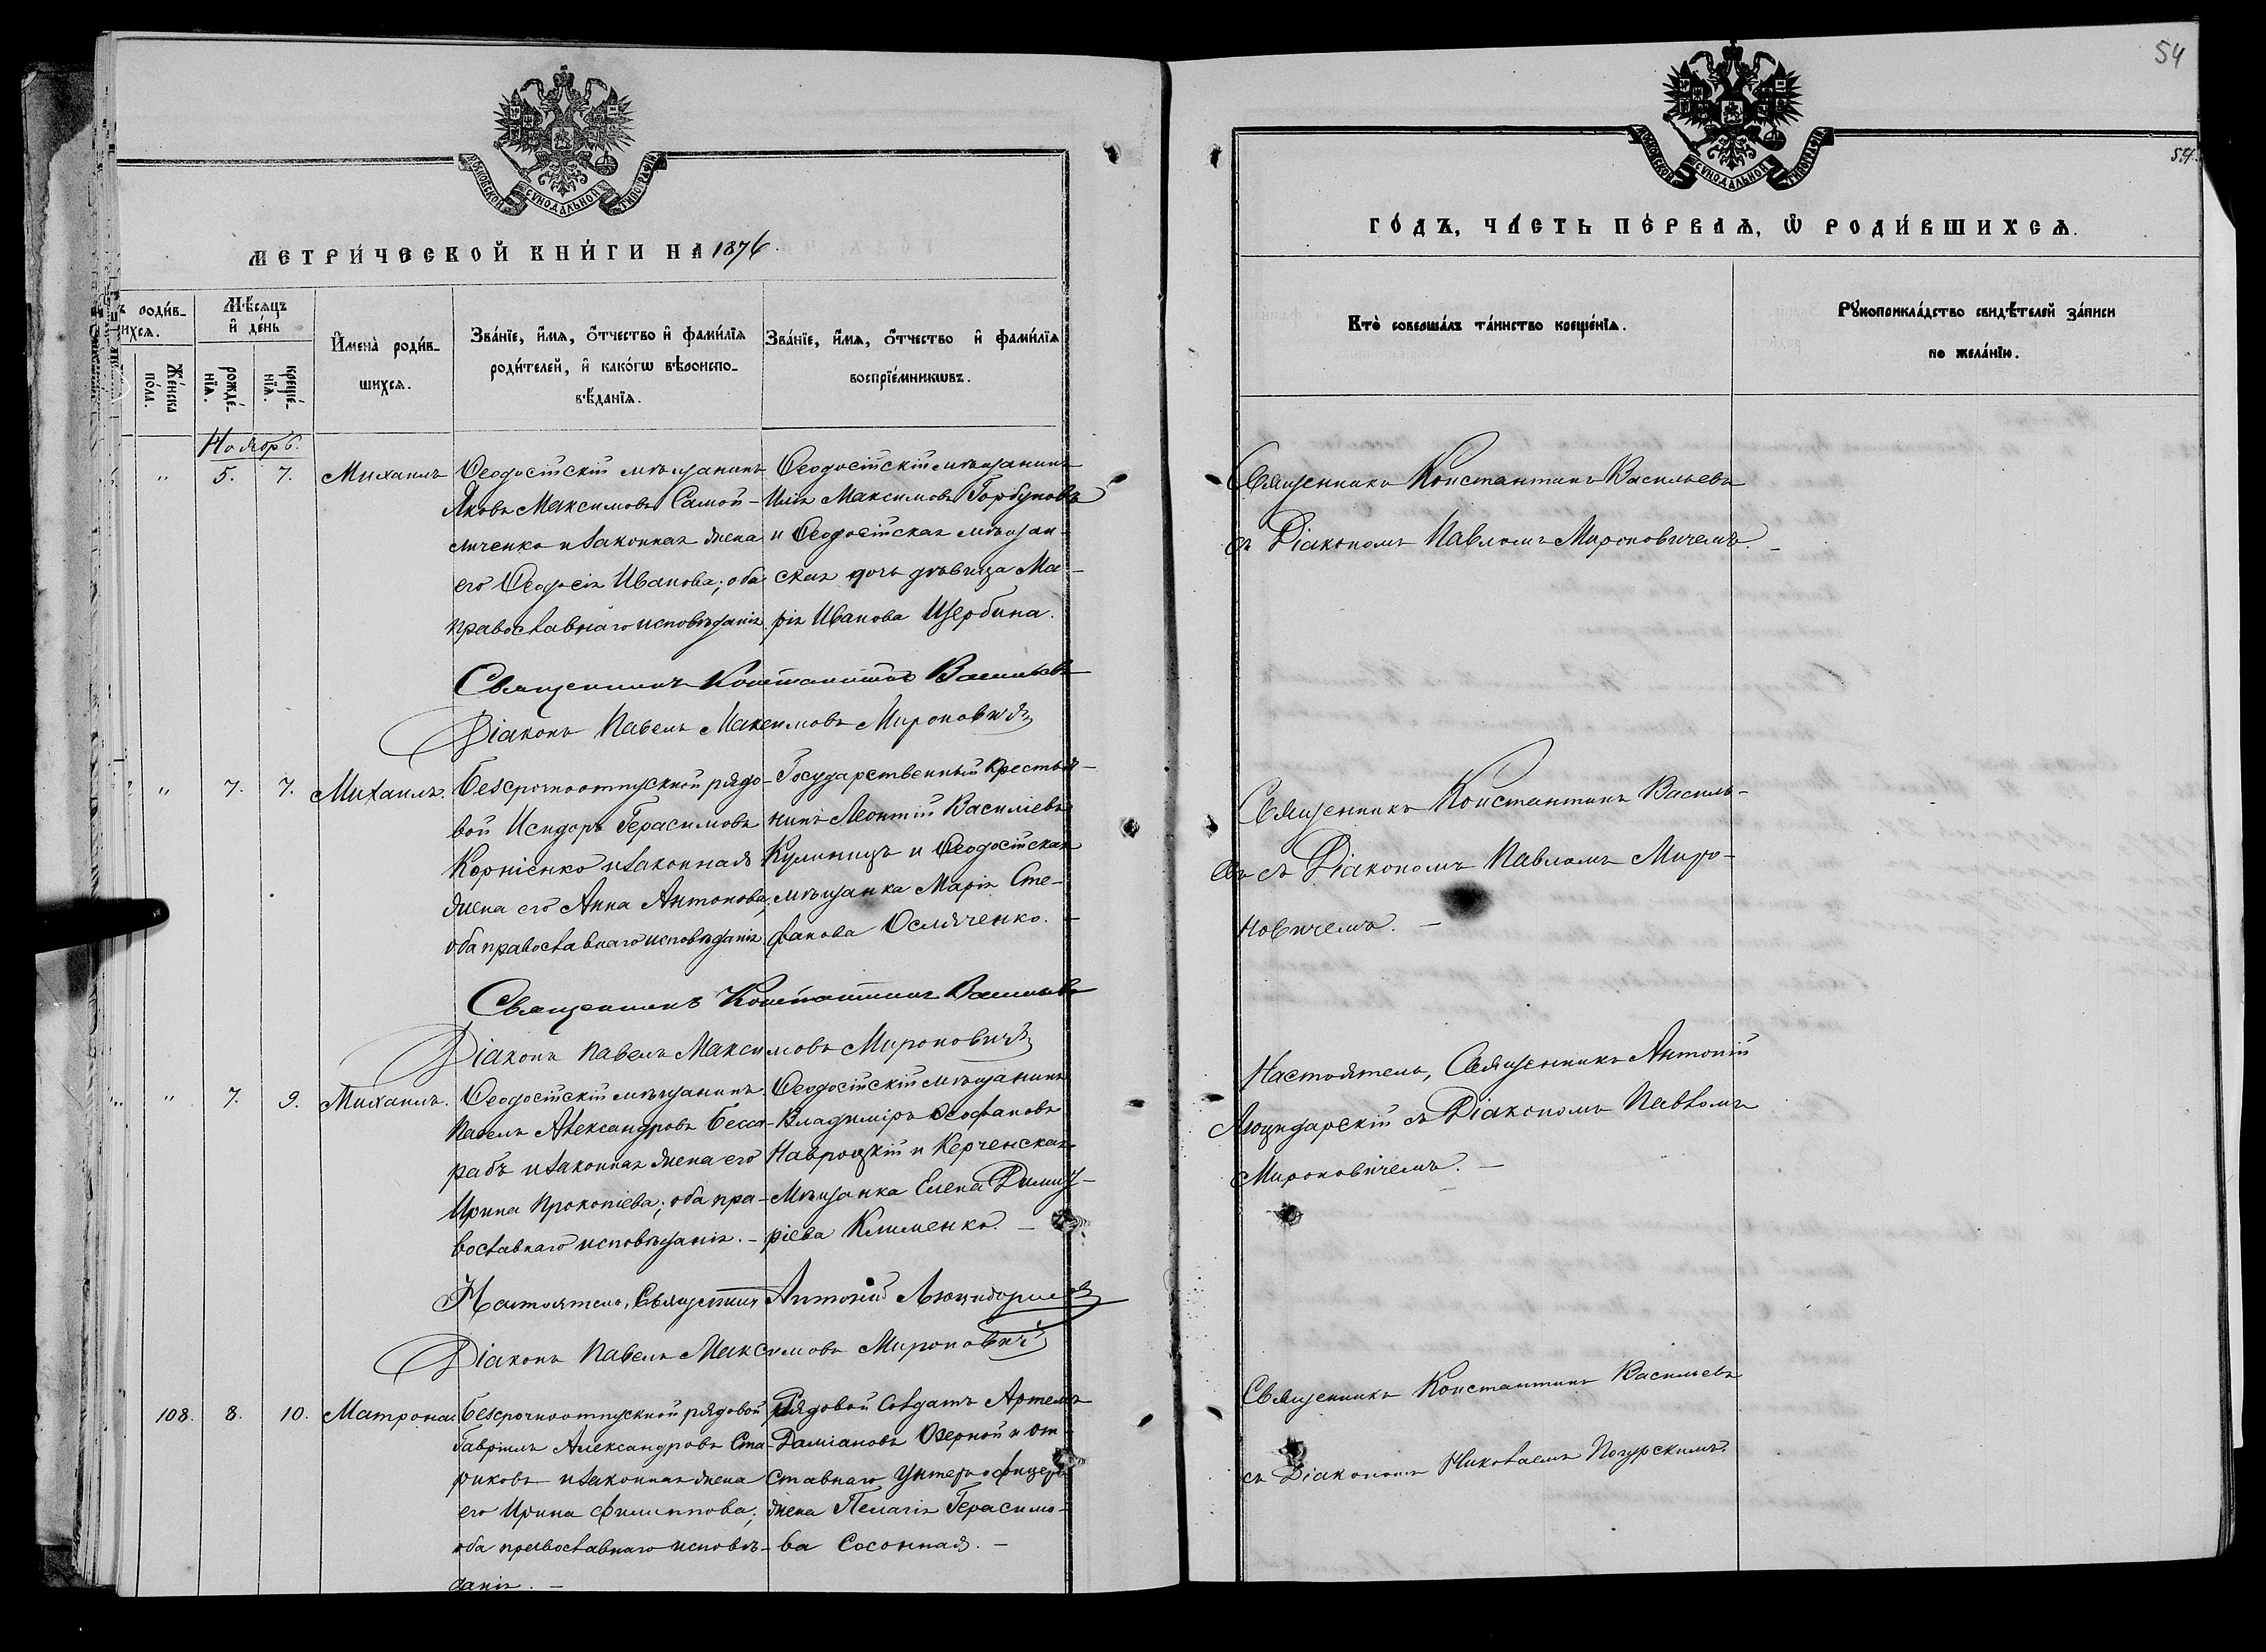 54
54.
МОСКОВСКОЙ СѴНОДАЛЬНОЙ ТИПОГРАФІИ
МЕТРИ́ЧЕСКОЙ КНИ́ГИ НА 1876
родив-
ихся.
Же́нска по́ла.
Мѣ́сяцъ и҆ де́нь
рожде́-нїѧ.
креще́-нїѧ.
И҆мена̀ роди́в-
шихсѧ.
Зва́нїе, и҆́мѧ, ѻ҆́тчество и҆ фами́лїѧ
роди́телей, и҆ како́гѡ вѣ́роиспо-
вѣ́данїѧ.
Зва́нїе, и҆́мѧ, ѻ҆́тчество и҆ фами́лїѧ
воспрїе́мникѡвъ.
Ноябрь.
" 5. 7. Михаилъ
Ѳеодосійскій мѣщанинъ
Яковъ Максимовъ Самой-
личенко и законная жена
его Ѳеодосія Иванова; оба
православнаго исповѣданія.
Ѳеодосійскій мѣщанинъ
Илія Максимовъ Горбуновъ
и Ѳеодосійская мѣщан-
ская дочь дѣвица Ма-
рія Иванова Щербина.
Священникъ Константинъ Васильевъ
Діаконъ Павелъ Максимовъ Мироновичъ
" 7. 7. Михаилъ.
Безсрочноотпускной рядо-
вой Исидоръ Герасимовъ
Корніенко и законная
жена его Анна Антонова;
оба православнаго исповѣданія.
Государственный крестья-
нинъ Леонтій Василіевъ
Кулиницъ и Ѳеодосійская
мѣщанка Марія Сте-
фанова Осляченко. -
Священникъ Константинъ Васильевъ
Діаконъ Павелъ Максимовъ Мироновичъ
" 7. 9. Михаилъ.
Ѳеодосійскій мѣщанинъ
Павелъ Александровъ Бесса-
рабъ и законная жена его
Ирина Прокопіева; оба пра-
вославнаго исповѣданія. -
Ѳеодосійскій мѣщанинъ
Владиміръ Ѳеофановъ
Навроцкій и Керченская
мѣщанка Елена Димит-
ріева Клименко. -
Настоятель, Священникъ Антоній Люцидарскій
Діаконъ Павелъ Максимовъ Мироновичъ
108. 8. 10. Матрона.
Безсрочноотпускной рядовой
Гавріилъ Александровъ Ста-
риковъ и законная жена
его Ирина Филиппова;
оба православнаго исповѣ-
данія. -
Рядовой солдатъ Артемъ
Даміановъ Озерной и от-
ставнаго унтеръ офицера
жена Пелагія Герасимо-
ва Сосонная. -
МОСКОВСКОЙ СѴНОДАЛЬНОЙ ТИПОГРАФІИ
ГО́ДЪ, ЧА́СТЬ ПЕ́РВАѦ, Ѡ҆ РОДИ́ВШИХСѦ.
Кто̀ соверша́лъ та́инство креще́нїѧ.
Рꙋкоприкла́дство свидѣ́телей за́писи
по жела́нїю.
Священникъ Константинъ Васильевъ
съ Діакономъ Павломъ Мироновичемъ. -
Священникъ Константинъ Василь-
евъ съ Діакономъ Павломъ Миро-
новичемъ. -
Настоятель, Священникъ Антоній
Люцидарскій съ Діакономъ Павломъ
Мироновичемъ. -
Священникъ Константинъ Васильевъ
съ Діакономъ Николаемъ